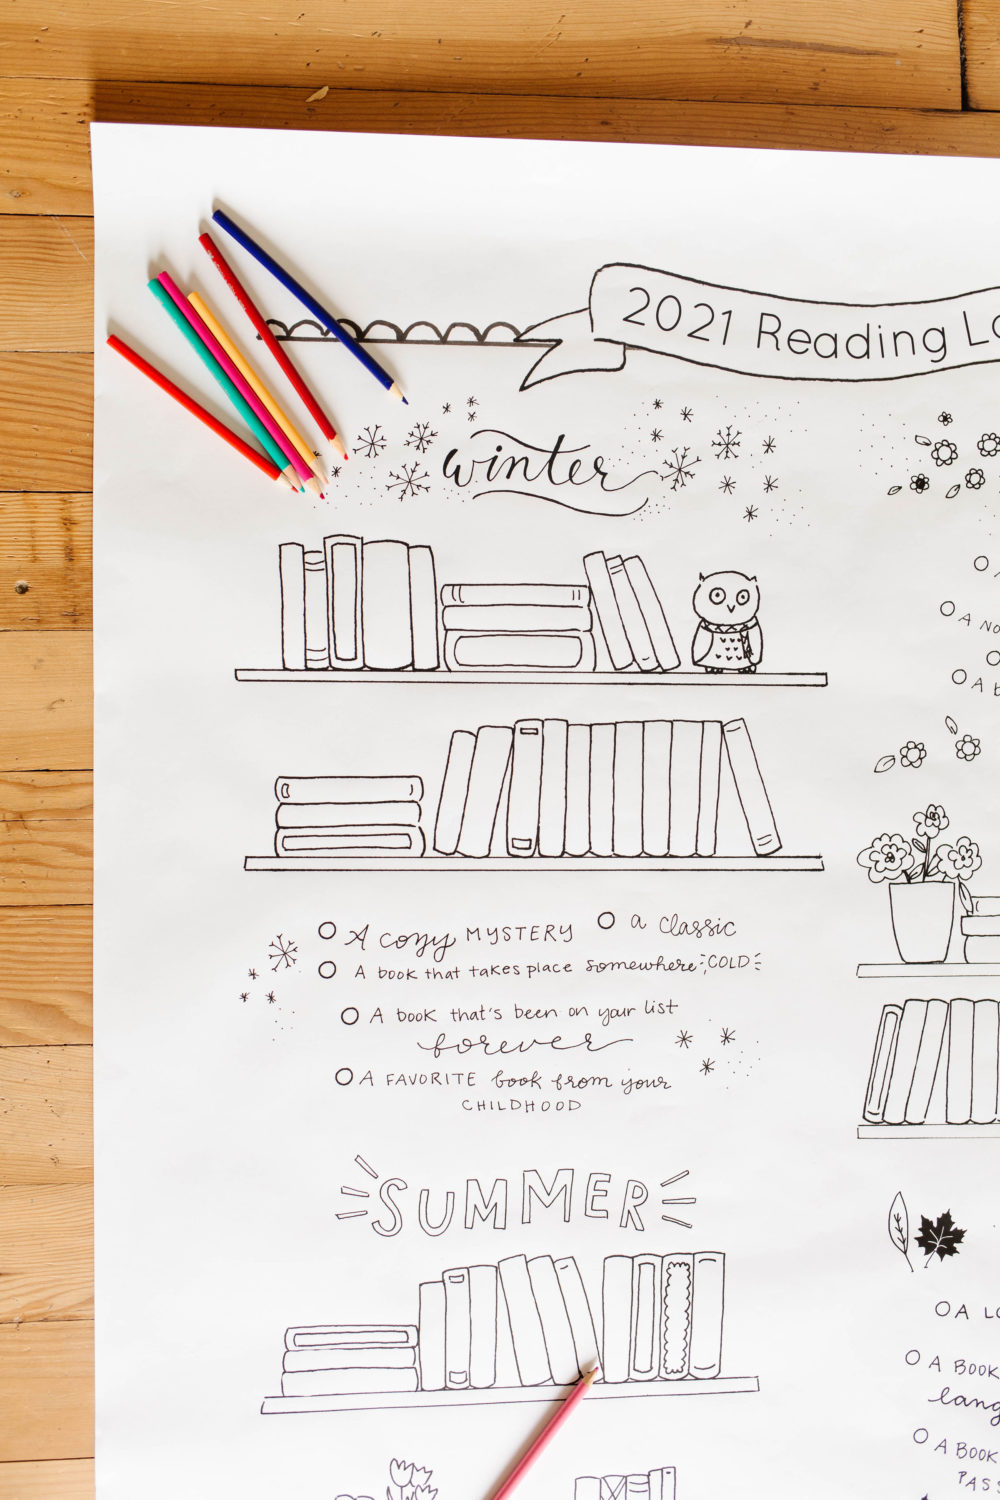 2021 Reading
winter
A cozy MYSTERY
a classic
A book that takes place somewhere COLD
A book that's been on your list
forever
A FAVORITE book from your
CHILDHOOD
SUMMER
A NO
A
A
A BOOK
A BOOK